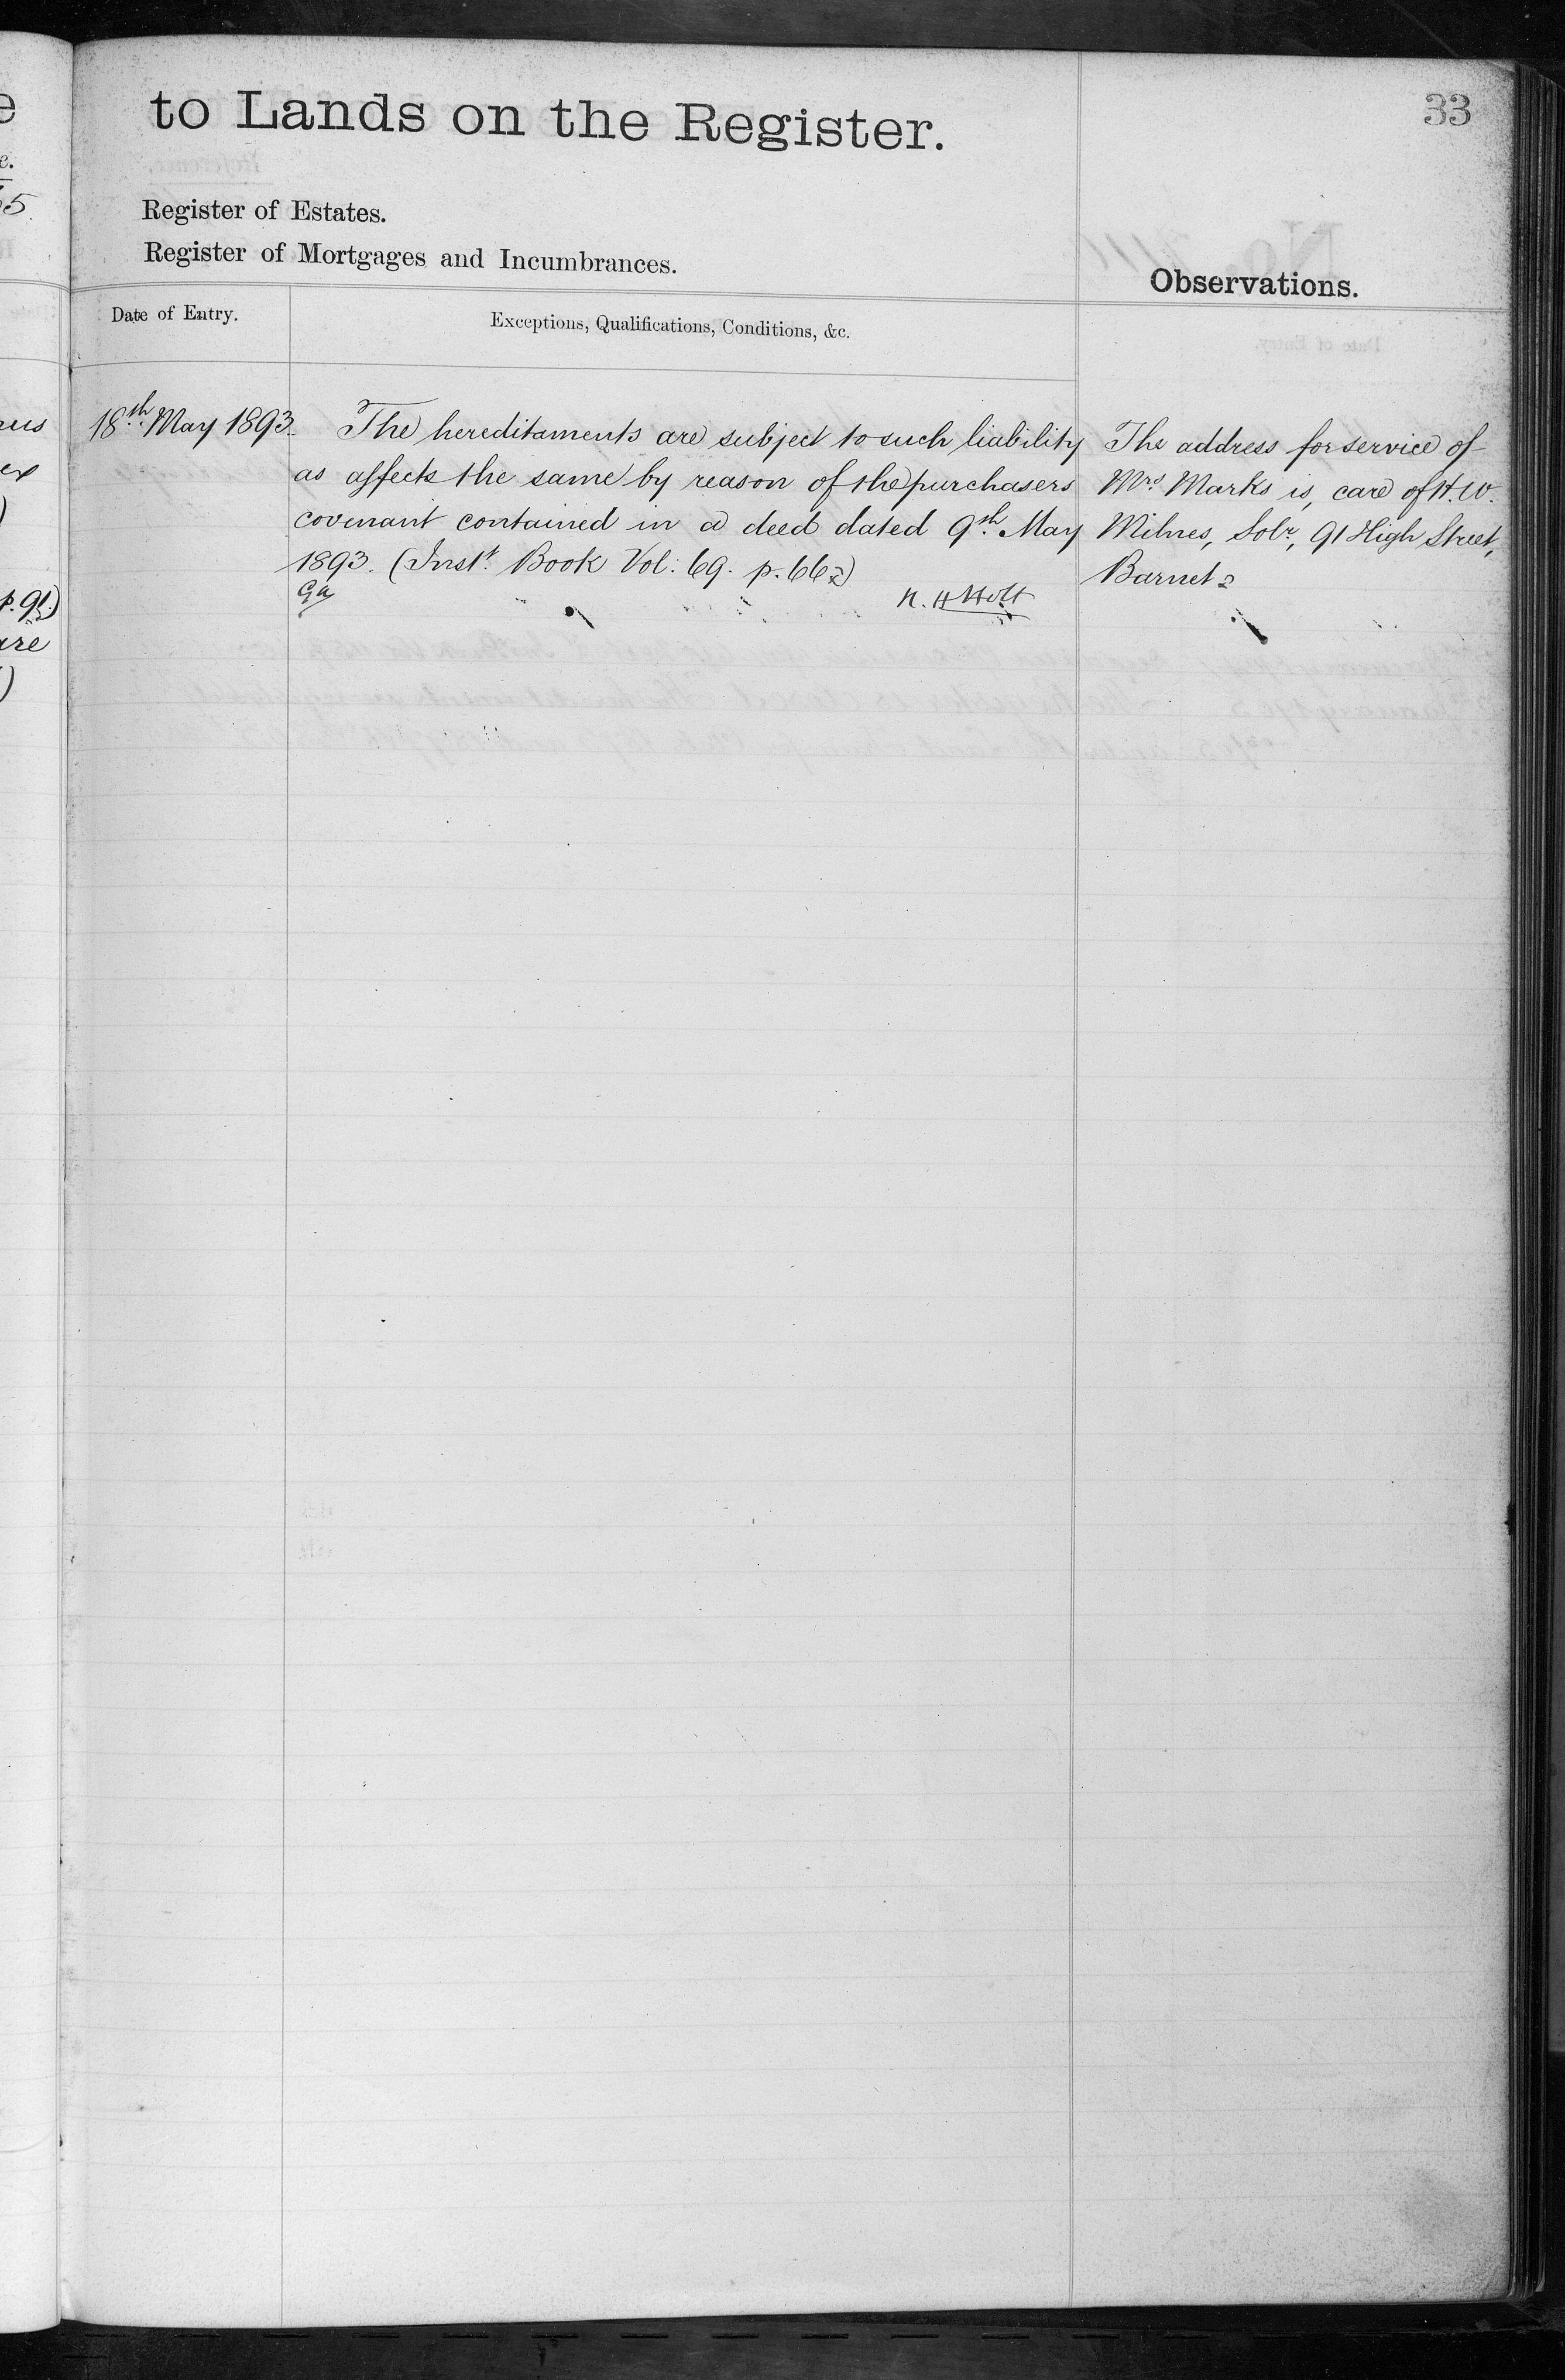 to Lands on the Register.
33
Register of Estates.
Register of Mortgages and Incumbrances.
Observations.
Date of Entry.
Exceptions, Qualifications, Conditions, &c.
18th May 1893.
The hereditaments are subject to such liability
as affects the same by reason of the purchasers
covenant contained in a deed dated 9th May
1893. (Inst. Book Vol: 69. p. 66)
N. H Holt
The address for service of
Mrs Marks is, care of H. W.
Milnes, Solr, 91 High Street,
Barnet
p. 91.)